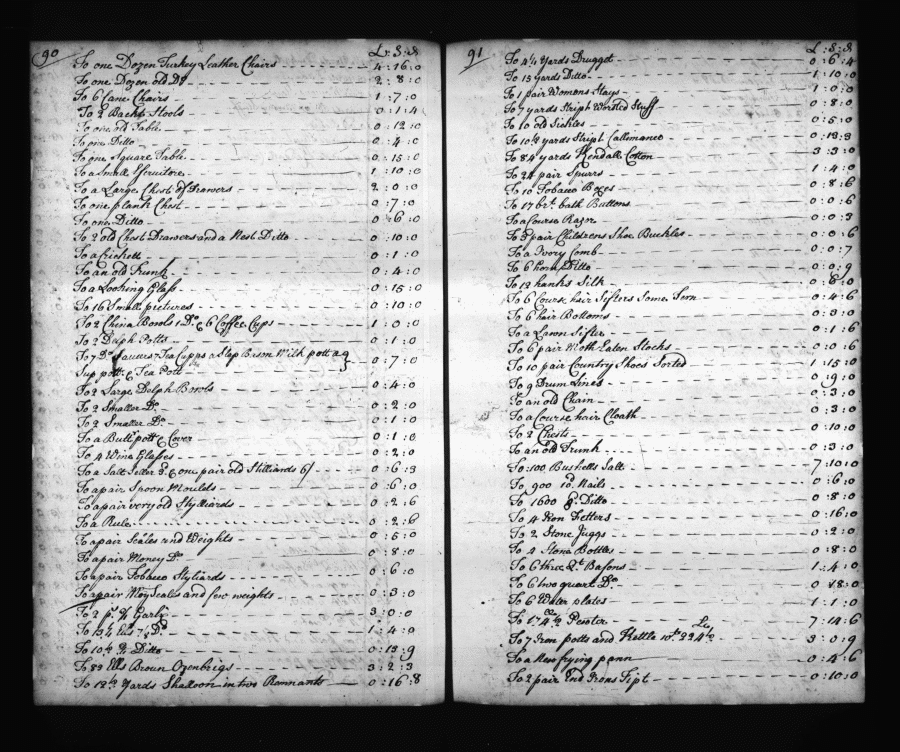 90
L : S : d
To one Dozen Turkey Leather Chairs 4 : 16 : 0
To one Dozen old Do 2 : 8 : 0
To 6 Cane Chairs 1 : 7 : 0
To 2 Backt Stools 0 : 1 : 4
To one old Table 0 : 12 : 0
To one Ditto 0 : 4 : 0
To one Square Table 0 : 15 : 0
To a Small Scruitore 1 : 10 : 0
To a Large Chest of Drawers 2 : 0 : 0
To one plank Chest 0 : 7 : 0
To one Ditto 0 : 6 : 0
To 2 old Chest Drawers and a Nest Ditto 0 : 10 : 0
To a Crickett 0 : 1 : 0
To an old Trunk 0 : 4 : 0
To a Looking Glass 0 : 15 : 0
To 16 Small pictures 0 : 10 : 0
To 2 China Bowls 1 Do & 6 Coffee Cups 1 : 0 : 0
To 2 Delph Potts 0 : 1 : 0
To 7 Do Sawers, Tea Cupps a Slop Bason Milk pott a 9
Sup pott & Tea Pott 0 : 7 : 0
To 2 Large Delph Bowls 0 : 4 : 0
To 2 Smaller Do 0 : 2 : 0
To 2 Smaller Do 0 : 1 : 0
To a Butt pott & Cover 0 : 1 : 0
To 4 Wine Glasses 0 : 2 : 0
To a Salt Seller 3d & one pair old Stilliards 6/ 0 : 6 : 3
To a pair Spoon Moulds 0 : 6 : 0
To a pair very old Styllards 0 : 2 : 6
To a Rule 0 : 2 : 6
To a pair Scales and Weights 0 : 5 : 0
To a pair Money Do 0 : 8 : 0
To a pair Tobacco Styliards 0 : 6 : 0
To a pair Scales and few weights 0 : 3 : 0
To 2 ps Garlix 3 : 0 : 0
To 13½ Ells Do 1 : 4 : 9
To 10½ Ditto 0 : 13 : 9
To 83 Ells Broun Ozenbrigs 3 : 2 : 3
To 12½ Yards Shalloon in two Remnants 0 : 16 : 8
91
L : S : d
To 4¼ Yards Drugget 0 : 6 : 4
To 15 yards Ditto 1 : 10 : 0
To 1 pair Womens Stays 1 : 0 : 0
To 7 yards Stript Worsted Stuff 0 : 8 : 0
To 10 old Sickles 0 : 5 : 0
To 10½ yards Stript Callemanco 0 : 13 : 3
To 84 yards Kendall Cotton 3 : 3 : 0
To 24 pair Spurrs 1 : 4 : 0
To 10 Tobacco Boxes 0 : 8 : 6
To 17 brt bath Buttons 0 : 0 : 6
To a Course Razor 0 : 0 : 3
To 3 pair Childrens Shoe Buckles 0 : 0 : 6
To a Ivory Comb 0 : 0 : 7
To 6 horn Ditto 0 : 0 : 9
To 12 hanks Silk 0 : 6 : 0
To 6 Course hair Sifters Some Torn 0 : 4 : 6
To 6 hair Bottoms 0 : 3 : 0
To a Lawn Sifter 0 : 1 : 6
To 6 pair Moth Eaten Stocks 0 : 0 : 6
To 10 pair Country Shoes Sorted 1 : 15 : 0
To 9 Drum Lines 0 : 9 : 0
To an old Chain 0 : 3 : 0
To a Course hair Cloath 0 : 3 : 0
To 2 Chests 0 : 10 : 0
To an old Trunk 0 : 3 : 0
To 100 Bushells Salt 7 : 10 : 0
To 900 10d Nails 0 : 6 : 0
To 1600 8d Ditto 0 : 8 : 0
To 4 Iron Fetters 0 : 16 : 0
To 2 Stone Juggs 0 : 2 : 0
To 4 Stone Bottles 0 : 8 : 0
To 6 three Qt Basons 1 : 4 : 0
To 6 two quart Do 0 : 18 : 0
To 6 Water plates 1 : 1 : 0
To 174½ Pewter 7 : 14 : 6
To 7 Iron potts and Kettle wt 224 lb 3 : 0 : 9
To a New frying pann 0 : 4 : 6
To 2 pair End Irons Tipt 0 : 10 : 0